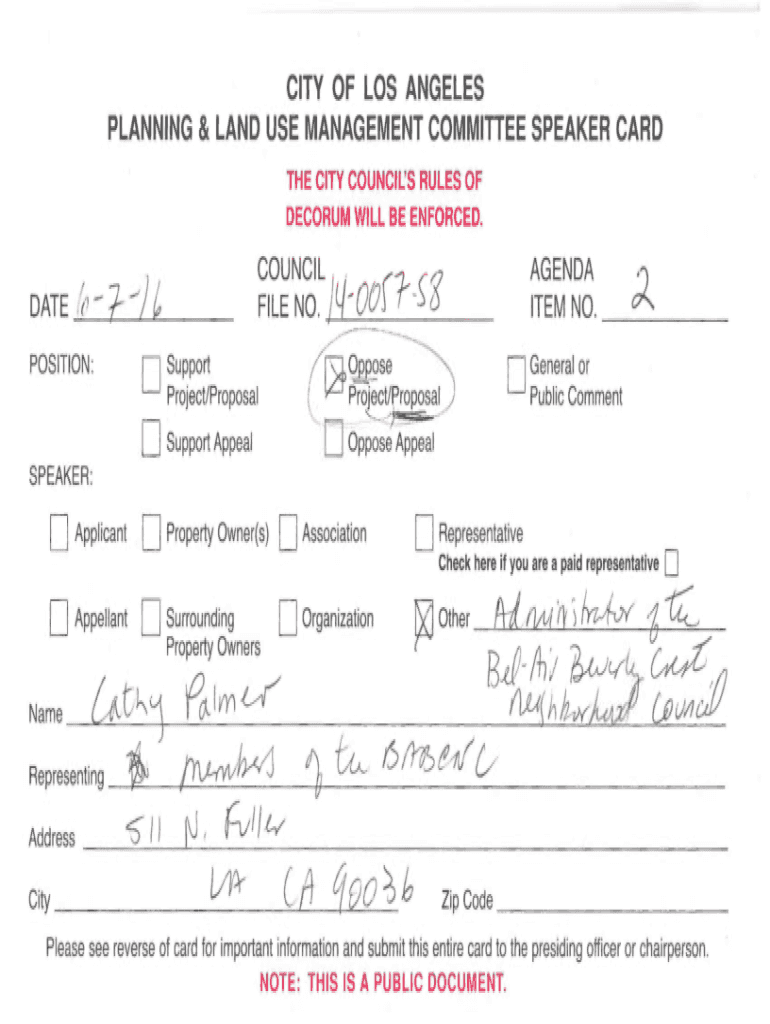 CITY OF LOS ANGELES
PLANNING & LAND USE MANAGEMENT COMMITTEE SPEAKER CARD
THE CITY COUNCIL'S RULES OF
DECORUM WILL BE ENFORCED.
DATE 6-7-16 COUNCIL FILE NO. 14-0057-S8 AGENDA ITEM NO. 2
POSITION: Support Project/Proposal Oppose Project/Proposal General or Public Comment
Support Appeal Oppose Appeal
SPEAKER:
Applicant Property Owner(s) Association Representative
Check here if you are a paid representative
Appellant Surrounding Property Owners Organization Other Administrator of the
Bel-Air Beverly Crest
neighborhood Council
Name Cathy Palmer
Representing members of the BABCNC
Address 511 N. Fuller
City LA CA 90036 Zip Code
Please see reverse of card for important information and submit this entire card to the presiding officer or chairperson.
NOTE: THIS IS A PUBLIC DOCUMENT.